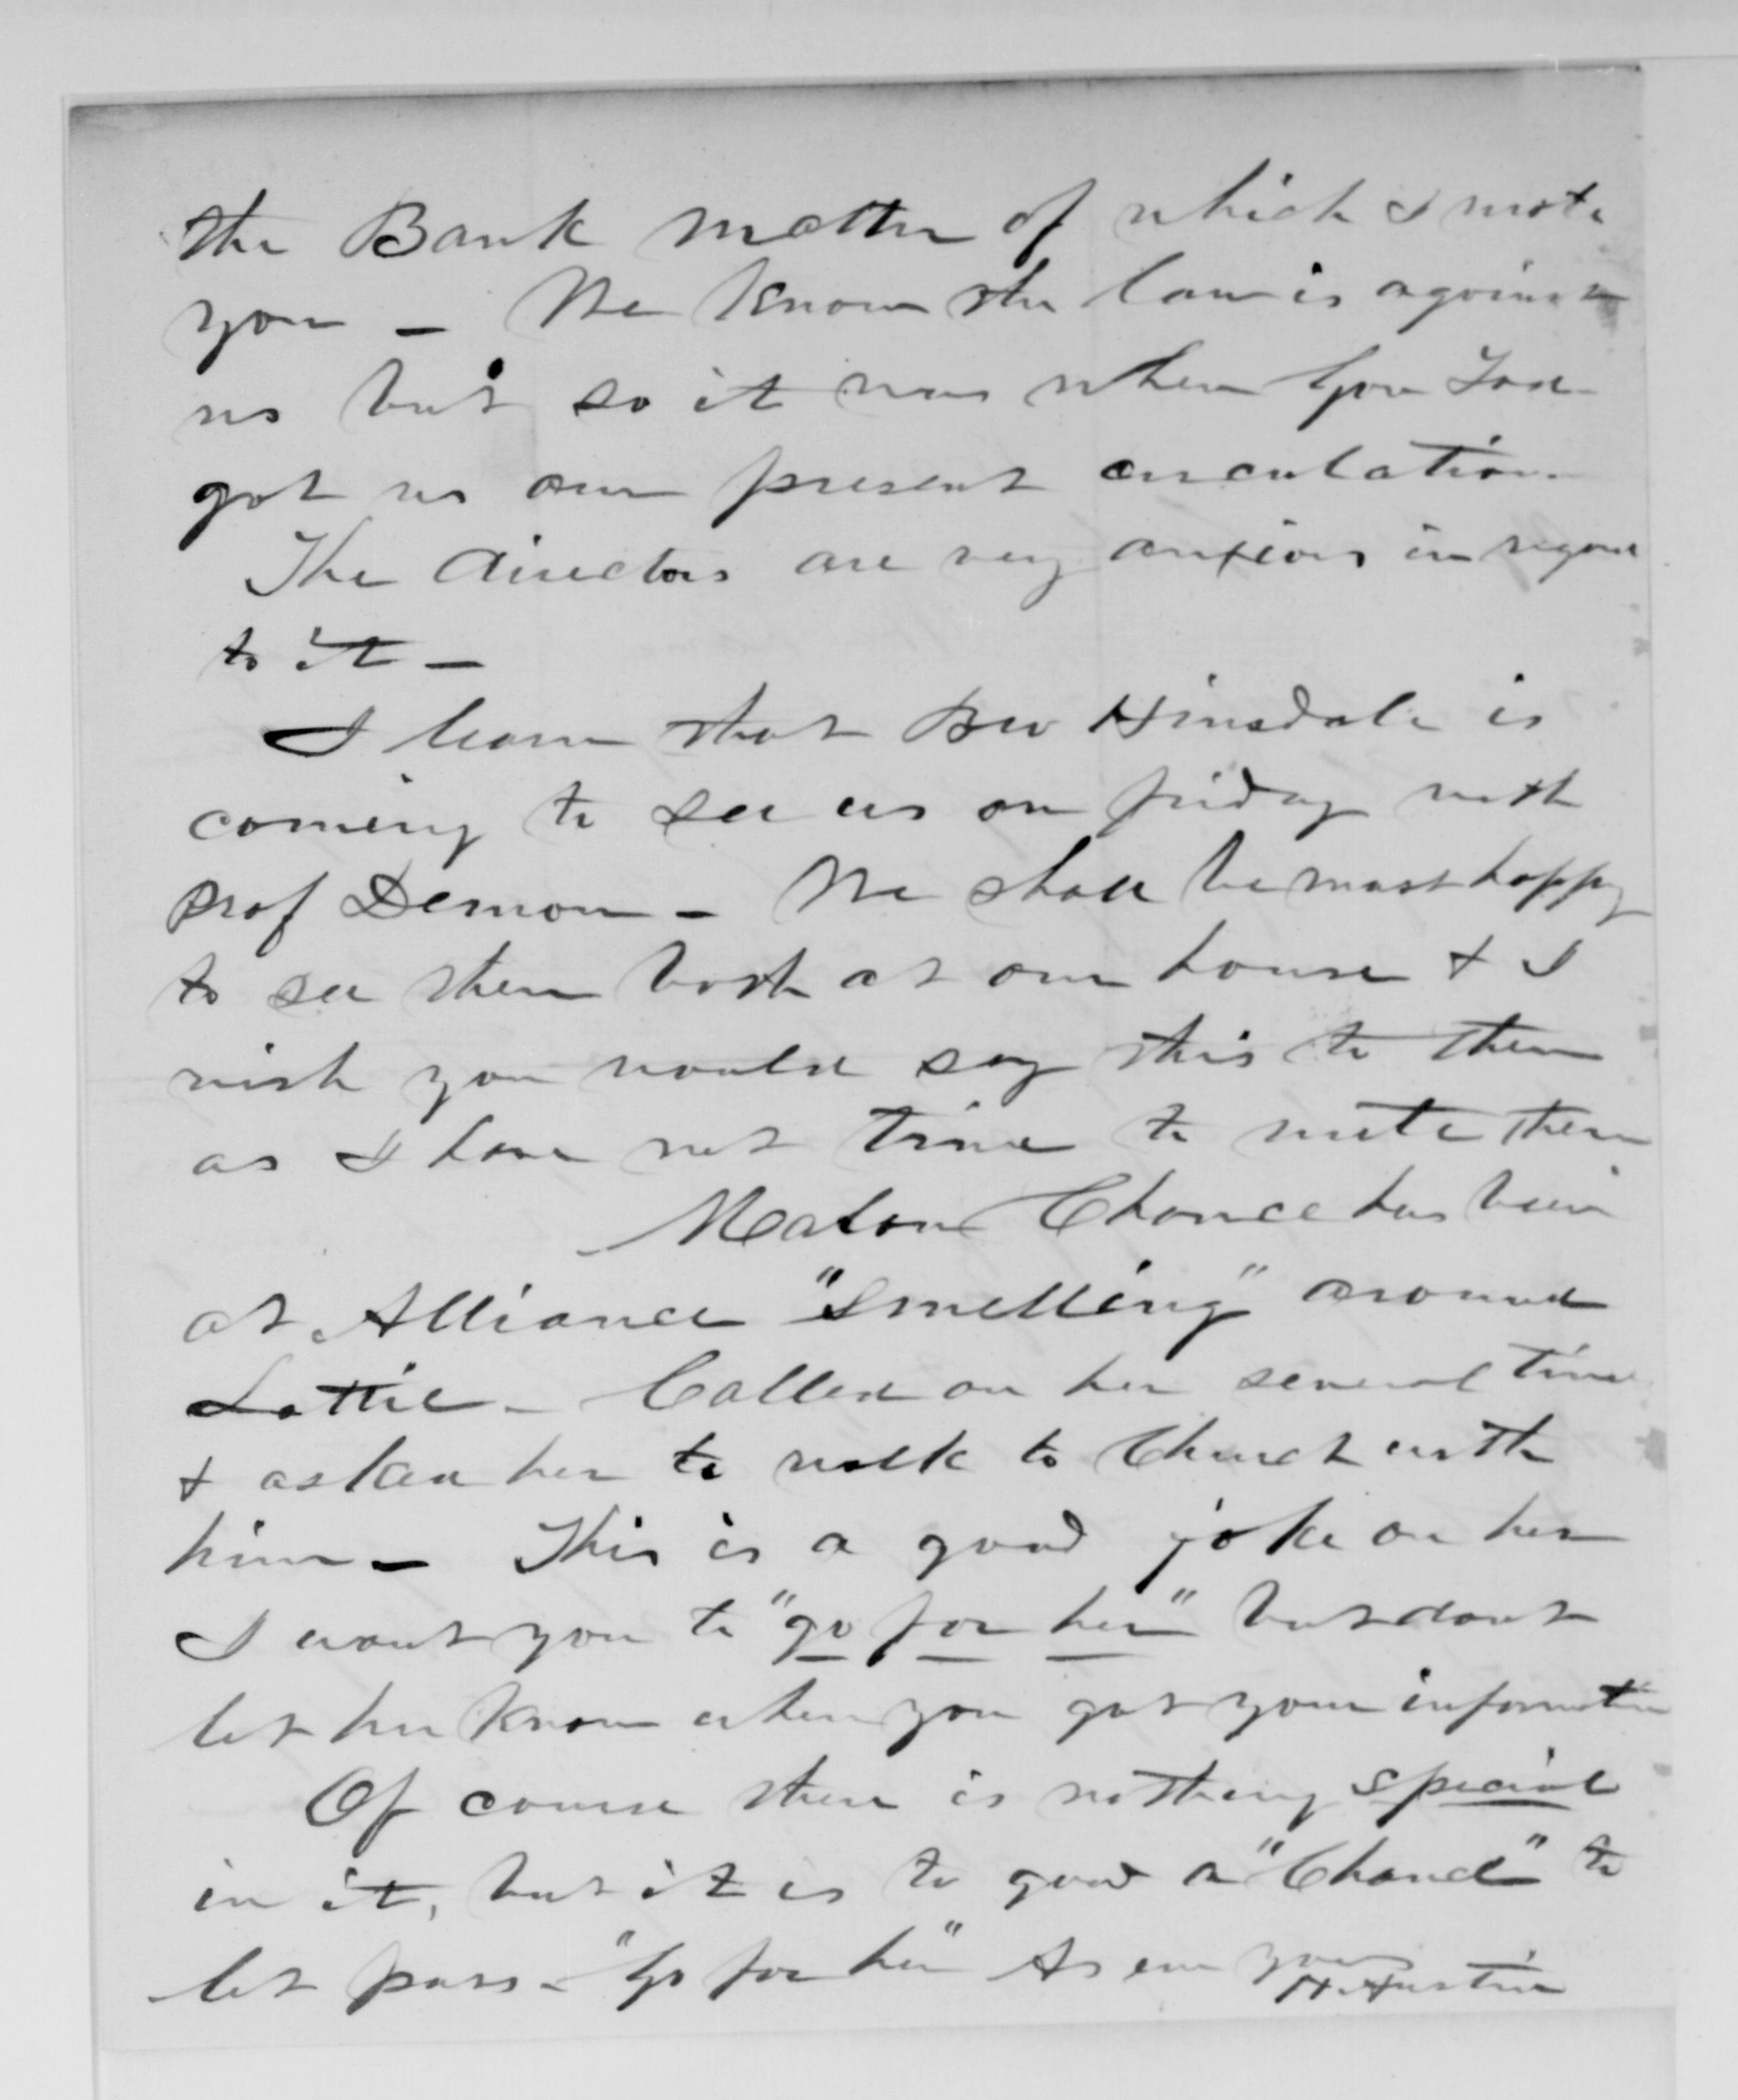 the Bank matter of which I wrote
you — We know the law is against
us but so it was when Gov Tod
got us our present circulation
The directors are very anxious in regard
to it —
I learn that Bro Hinsdale is
coming to see us on friday with
Prof Demon — We shall be most happy
to see them both at our house & I
wish you would say this to them
as I have not time to write them
Malone Chance has been
at Alliance "Smelling" around
Lottie — Called on her several times
& asked her to walk to Church with
him — This is a good joke on her
I want you to "go for her" but dont
let her know where you got your information
Of course there is nothing special
in it, but it is to good a "Chance" to
let pass — "Go for her" As ever yours
H. Austin